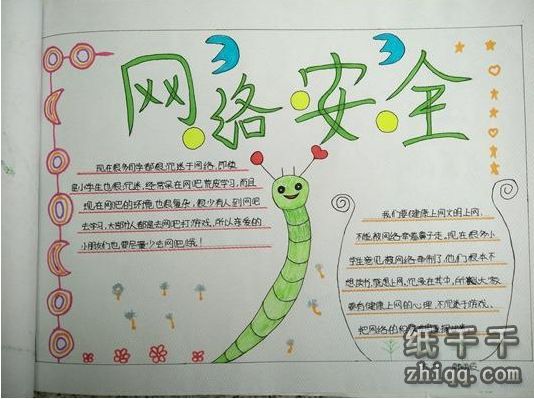 网络安全
现在很多同学都很沉迷于网络，即使
是小学生也很沉迷，经常呆在网吧荒废学习，而且
现在网吧的环境也很复杂，很少有人到网吧
去学习，大部分人都是去网吧打游戏，所以亲爱的
小朋友们也要尽量少去网吧哦！
我们要健康上网文明上网，
不能被网络牵着鼻子走。现在很多小
学生意见被网络牵制了，他们根本不
想读书，就想上网，沉浸在其中，所以大家
要有健康上网的心理，不沉迷于游戏、
把网络的
纸千千
zhiqq.com